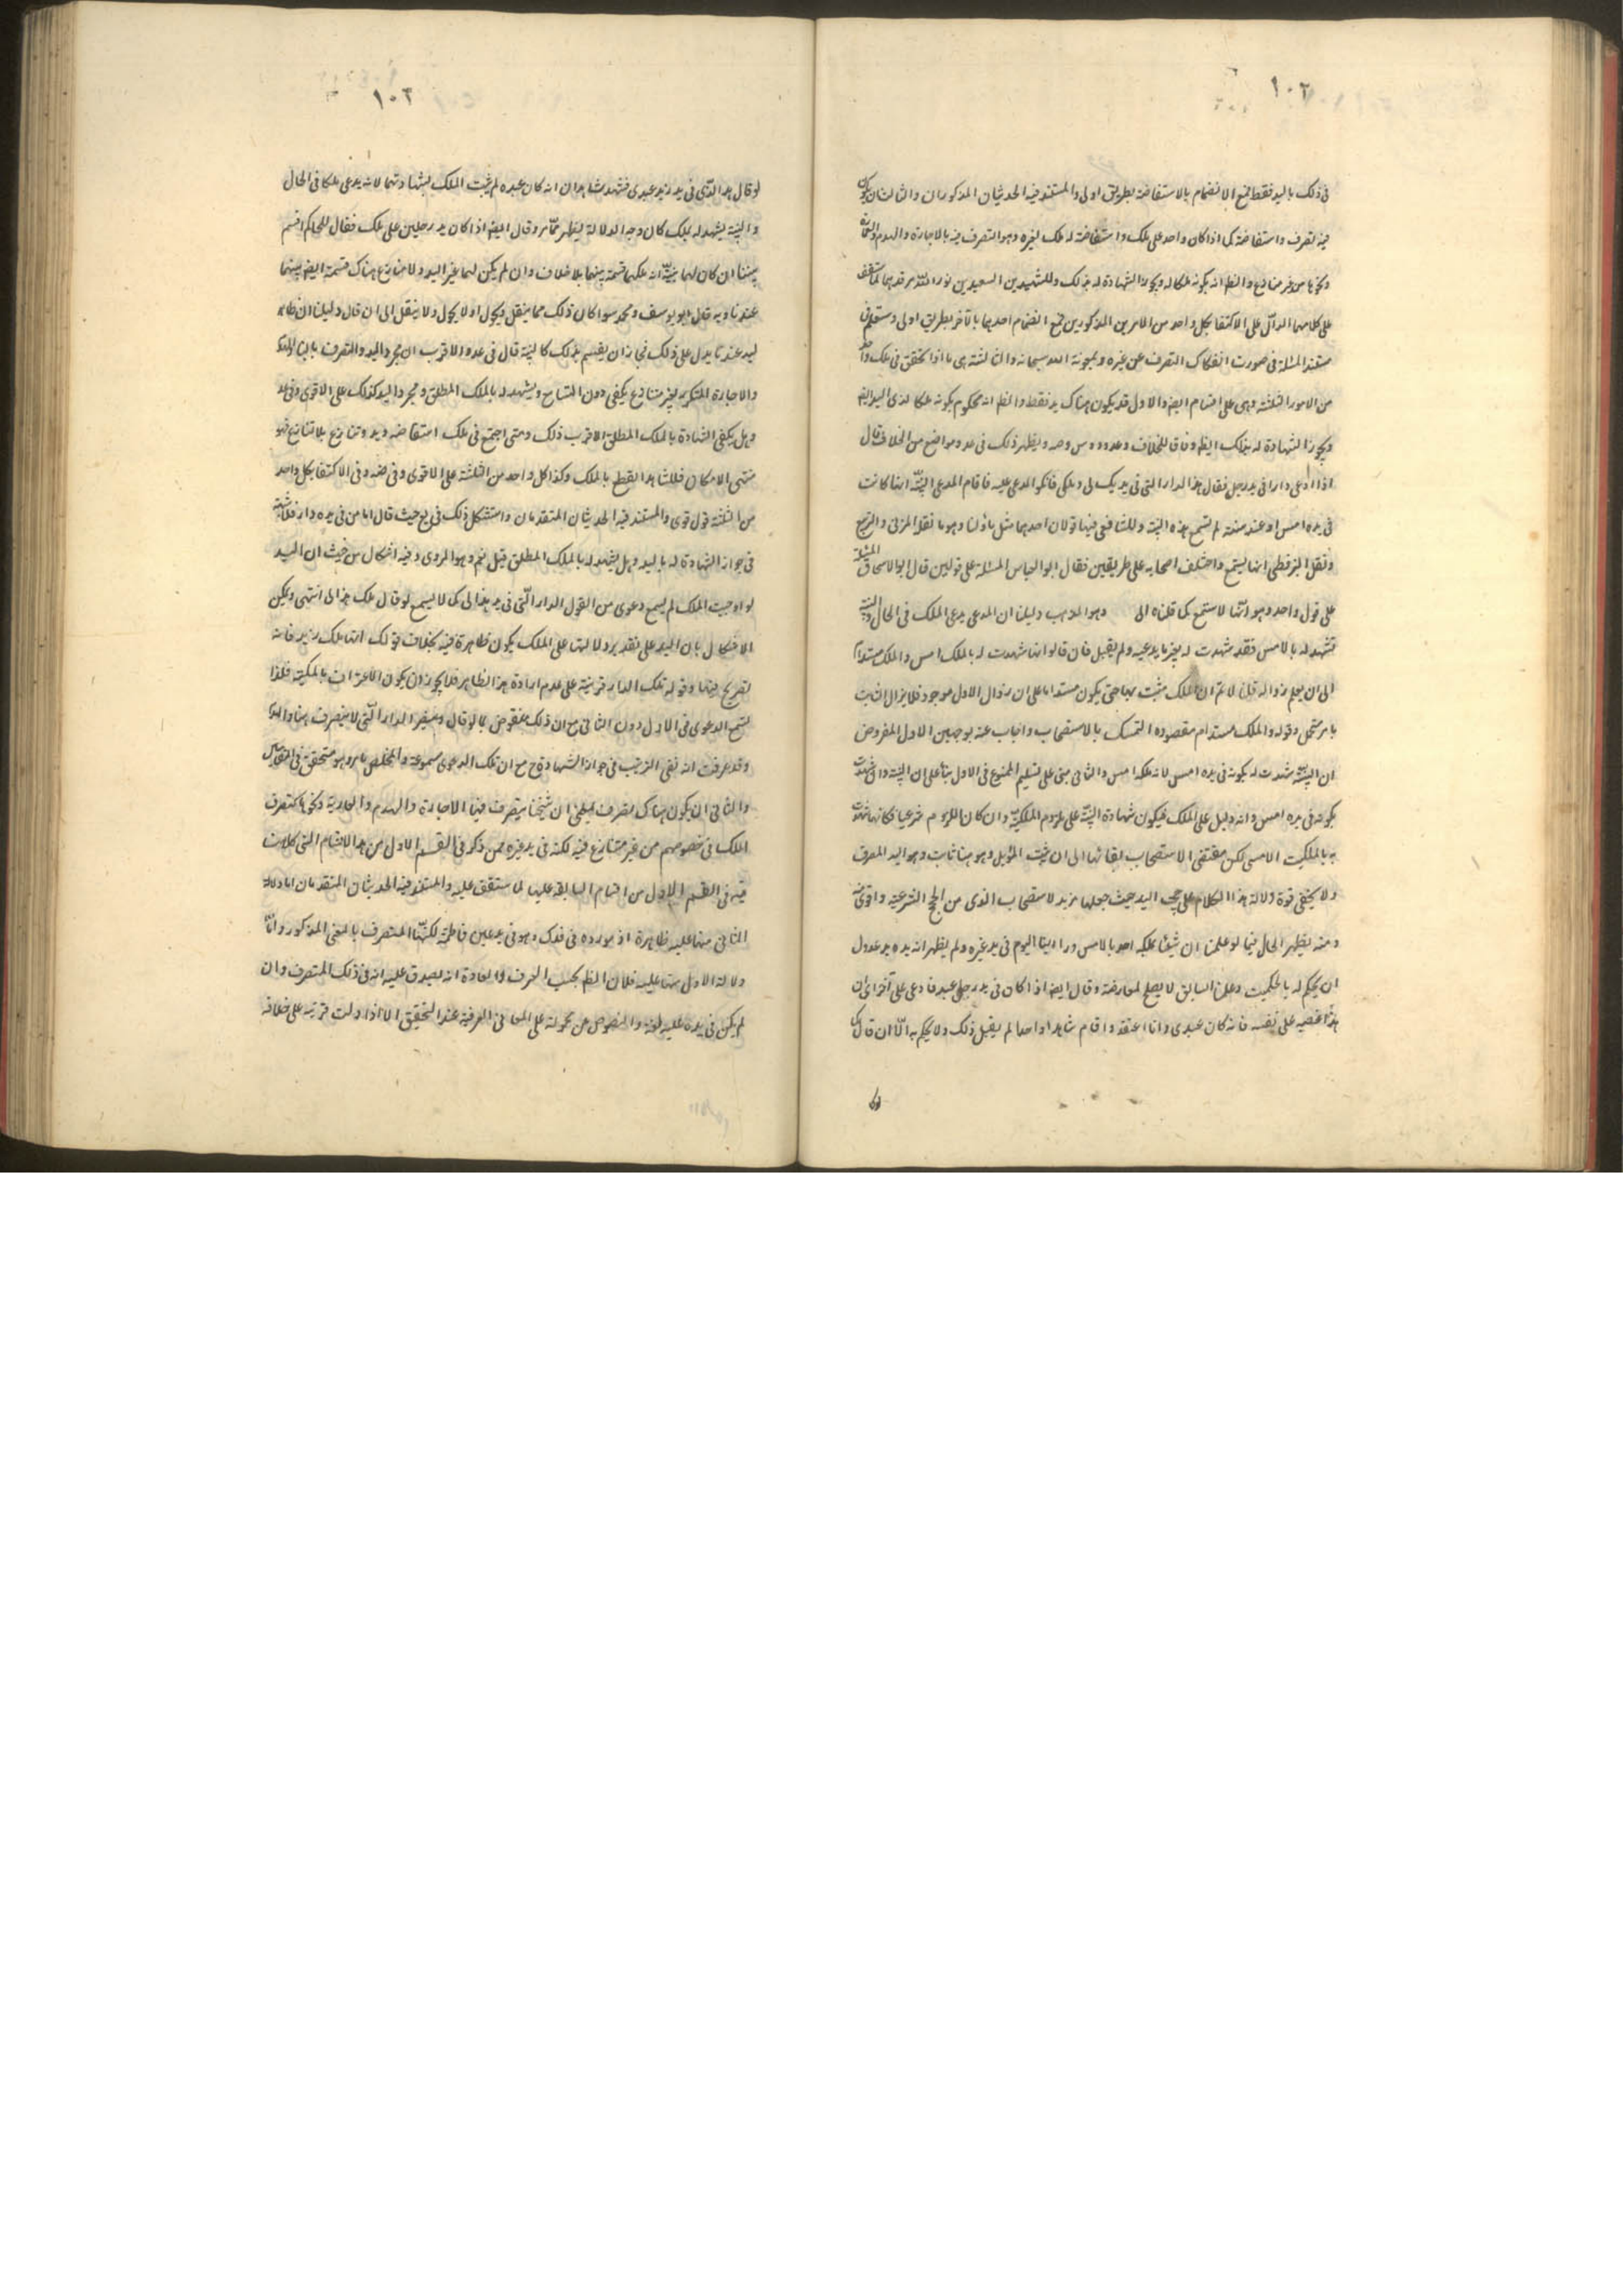 ١٠٢
في ذلك باليد فقط فمع الانضمام بالاستفاضة بطريق اولى والمستند فيه الحديثان المذكوران والثالث ان يكون
فيه تصرف واستفاضة كما اذا كان واحد على ملك واستفاضة له ملك لغيره وهو التصرف فيه بالاجارة والهدم والبناء
ونحوها من غير منازع والظ انه يكونه ملكا له ويجوز الشهادة له بذلك وللشهيدين السعيدين نور الله مرقدهما
على كلامهما الدال على الاكتفا بكل واحد من الامرين المذكورين فمع انضمام احدهما بالآخر بطريق اولى وستعلم
مستند المسئلة في صورت انفكاك التصرف عن غيره وبمعونة الله سبحانه والثالثة هي ما اذا تحقق في ملك واحد
من الامور الثلثة وهي على اقسام ايضا والاول قد يكون هناك يد فقط والظ انه محكوم بكونه ملكا لذي اليد ايضا
ويجوز الشهادة له بذلك ايضا وفاقا للخلاف وعد ود وس وصه ويظهر ذلك في عد ومواضع من الخلاف قال
اذا ادعى دارا في يد رجل فقال هذا الدار التي في يديك لي وملكي فانكر المدعى عليه فاقام المدعى البينة انها كانت
في يده امس او منذ سنة لم تسمع هذه البينة وللشافعي فيها قولان احدهما مثل ما قلنا وهو ما نقل المزني والربيع
ونقل البويطي انها يسمع واختلف اصحابه على طريقين فقال ابو العباس المسئلة على قولين قال ابو الاسحاق المسئلة
على قول واحد وهو انها لا تسمع كما قلناه الى وهو المذهب دليلنا ان المدعي يدعي الملك في الحال والبينة
تشهد له بالامس فقد شهدت له بغير ما يدعيه ولم يقبل فان قالوا انها شهدت له بالملك امس والملك مستدام
الى ان يعلم زواله قلنا لا نم ان الملك مثبت بها حتى يكون مستداما على ان زوال الاول موجود فلا يزال الثابت
بامر محتمل وقوله والملك مستدام مقصوده التمسك بالاستصحاب واجاب عنه بوجهين الاول المفروض
ان البينة شهدت له بكونه في يده امس لا انه ملكه امس والثاني مبنى على تسليم الممنوع في الاول بناء على ان البينة وان شهدت
بكونه في يده امس وانه دليل على الملك فيكون شهادة البينة على لزوم الملكية وان كان اللزوم شرعيا فكانها شهدت
به بالملكيت الامسى لكن مقتضى الاستصحاب ابقائها الى ان يثبت المزيل وهو هنا ثابت وهو اليد المعرف
ولا يخفى قوة دلالة هذا الكلام على حجية اليد حيث جعلها مزيد لاستصحاب الذي من الحجج الشرعية واقوى منه
ومنه يظهر الحال فيما لو علمنا ان شيئا ملكه احد بالامس ورأينا اليوم في يد غيره ولم يظهر انه يده يد عدول
ان يحكم له بالحكميت وعلمنا السابق لا يصلح لمعارضته وقال ايضا اذا كان في يد رجل عبد فادعى على آخر اى ان
هذا غصبه على نفسه فانه كان عبدي وانا اعتقه واقام شاهدا واحدا لم يقبل ذلك ولا يحكم به الا ان قال
١٠٣
لو قال هذا الذي في يد زيد عبدي فشهد شاهدان انه كان عبده لم يثبت الملك بشهادتهما لانه يدعي ملكا في الحال
والبينة يشهد له بملك كان وجه الدلالة يظهر مما مر وقال ايضا اذا كان يد رجلين على ملك فقال للحاكم اقسم
بيننا ان كان لهما بينة انه ملكهما قسمه بينهما بلا خلاف وان لم يكن لهما غير اليد ولا منازع هناك قسمه ايضا بينهما
عندنا وبه قال ابو يوسف ومحمد سوا كان ذلك مما ينقل ويحول او لا يحول ولا ينقل الى ان قال دليلنا ان ظاهر
اليد عندنا يدل على ذلك فجاز ان يقسم بذلك كالبينة قال في عد والاقرب ان مجرد اليد والتصرف بالبنا والهدم
والاجارة المتكرر لغير منازع يكفي دون التسامح ويشهد له بالملك المطلق ومجرد اليد كذلك على الاقوى وفي عد
وهل يكفي الشهادة بالملك المطلق الاقرب ذلك ومتى اجتمع في ملك استفاضه ويد وتنازع بلا تنازع فهو
منتهى الامكان فللشاهد القطع بالملك وكذا كل واحد من الثلثة على الاقوى وفي ضه وفي الاكتفا بكل واحد
من الثلثة قول قوى والمستند فيه الحديثان المتقدمان واستشكل ذلك في يع حيث قال اما من في يده دار فلا شبهة
في جواز الشهادة له باليد وهل يشهد له بالملك المطلق قيل نعم وهو المروي وفيه اشكال من حيث ان اليد
لو اوجبت الملك لم يسمع دعوى من القول الدار التي في يد هذا لي كما لا يسمع لو قال ملك هذا لي انتهى ويمكن
الاشكال بان اليد على تقدير دلالتها على الملك يكون ظاهرة فيه بخلاف قولك انها ملك زيد فانه
تصريح فيها وقوله تلك الدار قرينة على عدم ارادة هذا الظاهر فلا يجوز ان يكون الاعتراف بالملكية فلذا
تسمع الدعوى في الاول دون الثاني مع ان ذلك منقوض بما لو قال ومقر الدار التي لا يتصرف
وقد عرفت انه نفى الريب في جواز الشهادة مع ان تلك الدعوى مسموعة والمخلص بامر وهو متحقق في المقامين
والثاني ان يكون هناك تصرف بمعنى ان شيخنا يتصرف فيها الاجارة والهدم والعارية ونحوها كتصرف
الملاك في خصوصهم من غير متنازع فيه لكنه في يد غيره ممن ذكر في القسم الاول من هذا الاقسام التي كلامت
فيه في القسم الاول من اقسام السابقة عليها لما ستقف عليه والمستند فيه الحديثان المتقدمان اما دلالة
الثاني منها عليه ظاهرة اذ مورده في فدك وهو في يد عين فاطمة لكنها المتصرف بالمعنى المذكور واما
دلالة الاول منها عليه فلان الظ بحسب العرف والعادة انه يصدق عليه انه في ذلك المتصرف وان
لم يكن في يده عليه لغة والنصوص عن محمولة على المعاني العرفية عند التحقيق الا اذا دلت قرينة على خلافه